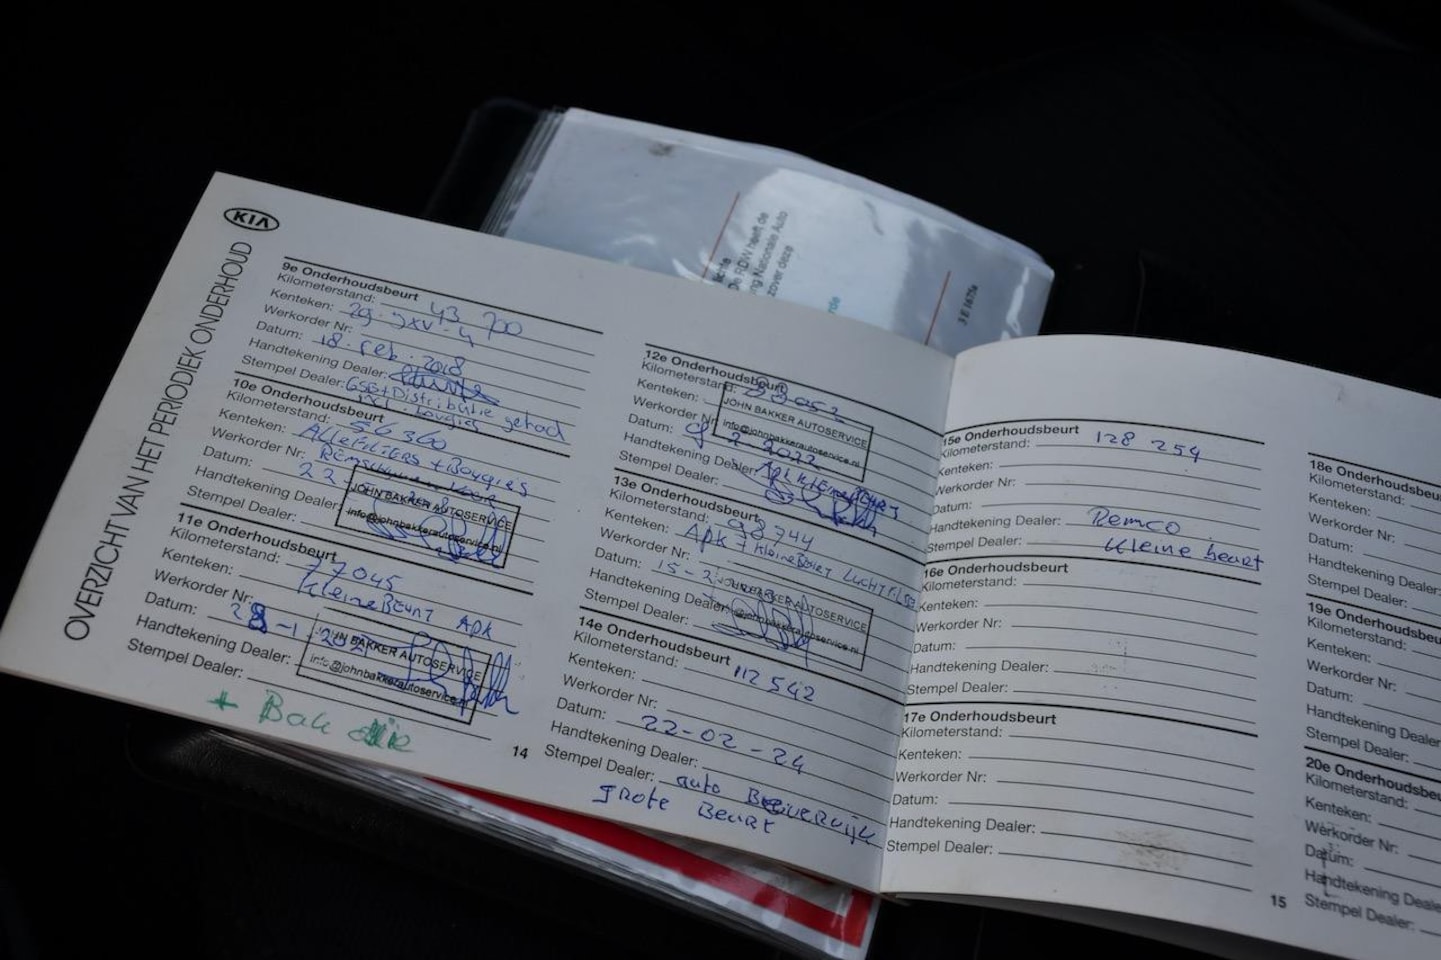 KIA
OVERZICHT VAN HET PERIODIEK ONDERHOUD
9e Onderhoudsbeurt
Kilometerstand: 43 700
Kenteken:
Werkorder Nr:
Datum: 18. feb. 2018
Handtekening Dealer:
Stempel Dealer: + Distributie gehad
10e Onderhoudsbeurt
Kilometerstand: 54 300
Kenteken: Alle Filters + Bougies
Werkorder Nr:
Datum: 22
Handtekening Dealer:
JOHN BAKKER AUTOSERVICE
info@johnbakkerautoservice.nl
Stempel Dealer:
11e Onderhoudsbeurt
Kilometerstand: 77045
Kenteken: Kleine Beurt APK
Werkorder Nr:
Datum:
Handtekening Dealer:
JOHN BAKKER AUTOSERVICE
info@johnbakkerautoservice.nl
Stempel Dealer:
+ Bak
14
12e Onderhoudsbeurt
Kilometerstand:
Kenteken:
JOHN BAKKER AUTOSERVICE
info@johnbakkerautoservice.nl
Werkorder Nr:
Datum: 9-2-2022
Handtekening Dealer: APK Kleine Beurt
Stempel Dealer:
13e Onderhoudsbeurt
Kilometerstand: 98744
Kenteken: APK + Kleine Beurt Lucht
Werkorder Nr:
Datum: 15-2
JOHN BAKKER AUTOSERVICE
info@johnbakkerautoservice.nl
Handtekening Dealer:
Stempel Dealer:
14e Onderhoudsbeurt
Kilometerstand: 112 542
Kenteken:
Werkorder Nr:
Datum: 22-02-24
Handtekening Dealer:
Stempel Dealer: auto Beverwijk
grote Beurt
15e Onderhoudsbeurt
Kilometerstand: 128 254
Kenteken:
Werkorder Nr:
Datum:
Handtekening Dealer: Remco
Stempel Dealer: Kleine beurt
16e Onderhoudsbeurt
Kilometerstand:
Kenteken:
Werkorder Nr:
Datum:
Handtekening Dealer:
Stempel Dealer:
17e Onderhoudsbeurt
Kilometerstand:
Kenteken:
Werkorder Nr:
Datum:
Handtekening Dealer:
Stempel Dealer:
15
18e Onderhoudsbeu
Kilometerstand:
Kenteken:
Werkorder Nr:
Datum:
Handtekening Dealer:
Stempel Dealer:
19e Onderhoudsbeu
Kilometerstand:
Kenteken:
Werkorder Nr:
Datum:
Handtekening Dealer:
Stempel Dealer:
20e Onderhoudsbeu
Kilometerstand:
Kenteken:
Werkorder Nr:
Datum:
Handtekening Dealer:
Stempel Dealer:
RDW heeft de
Nationale Auto
zover deze